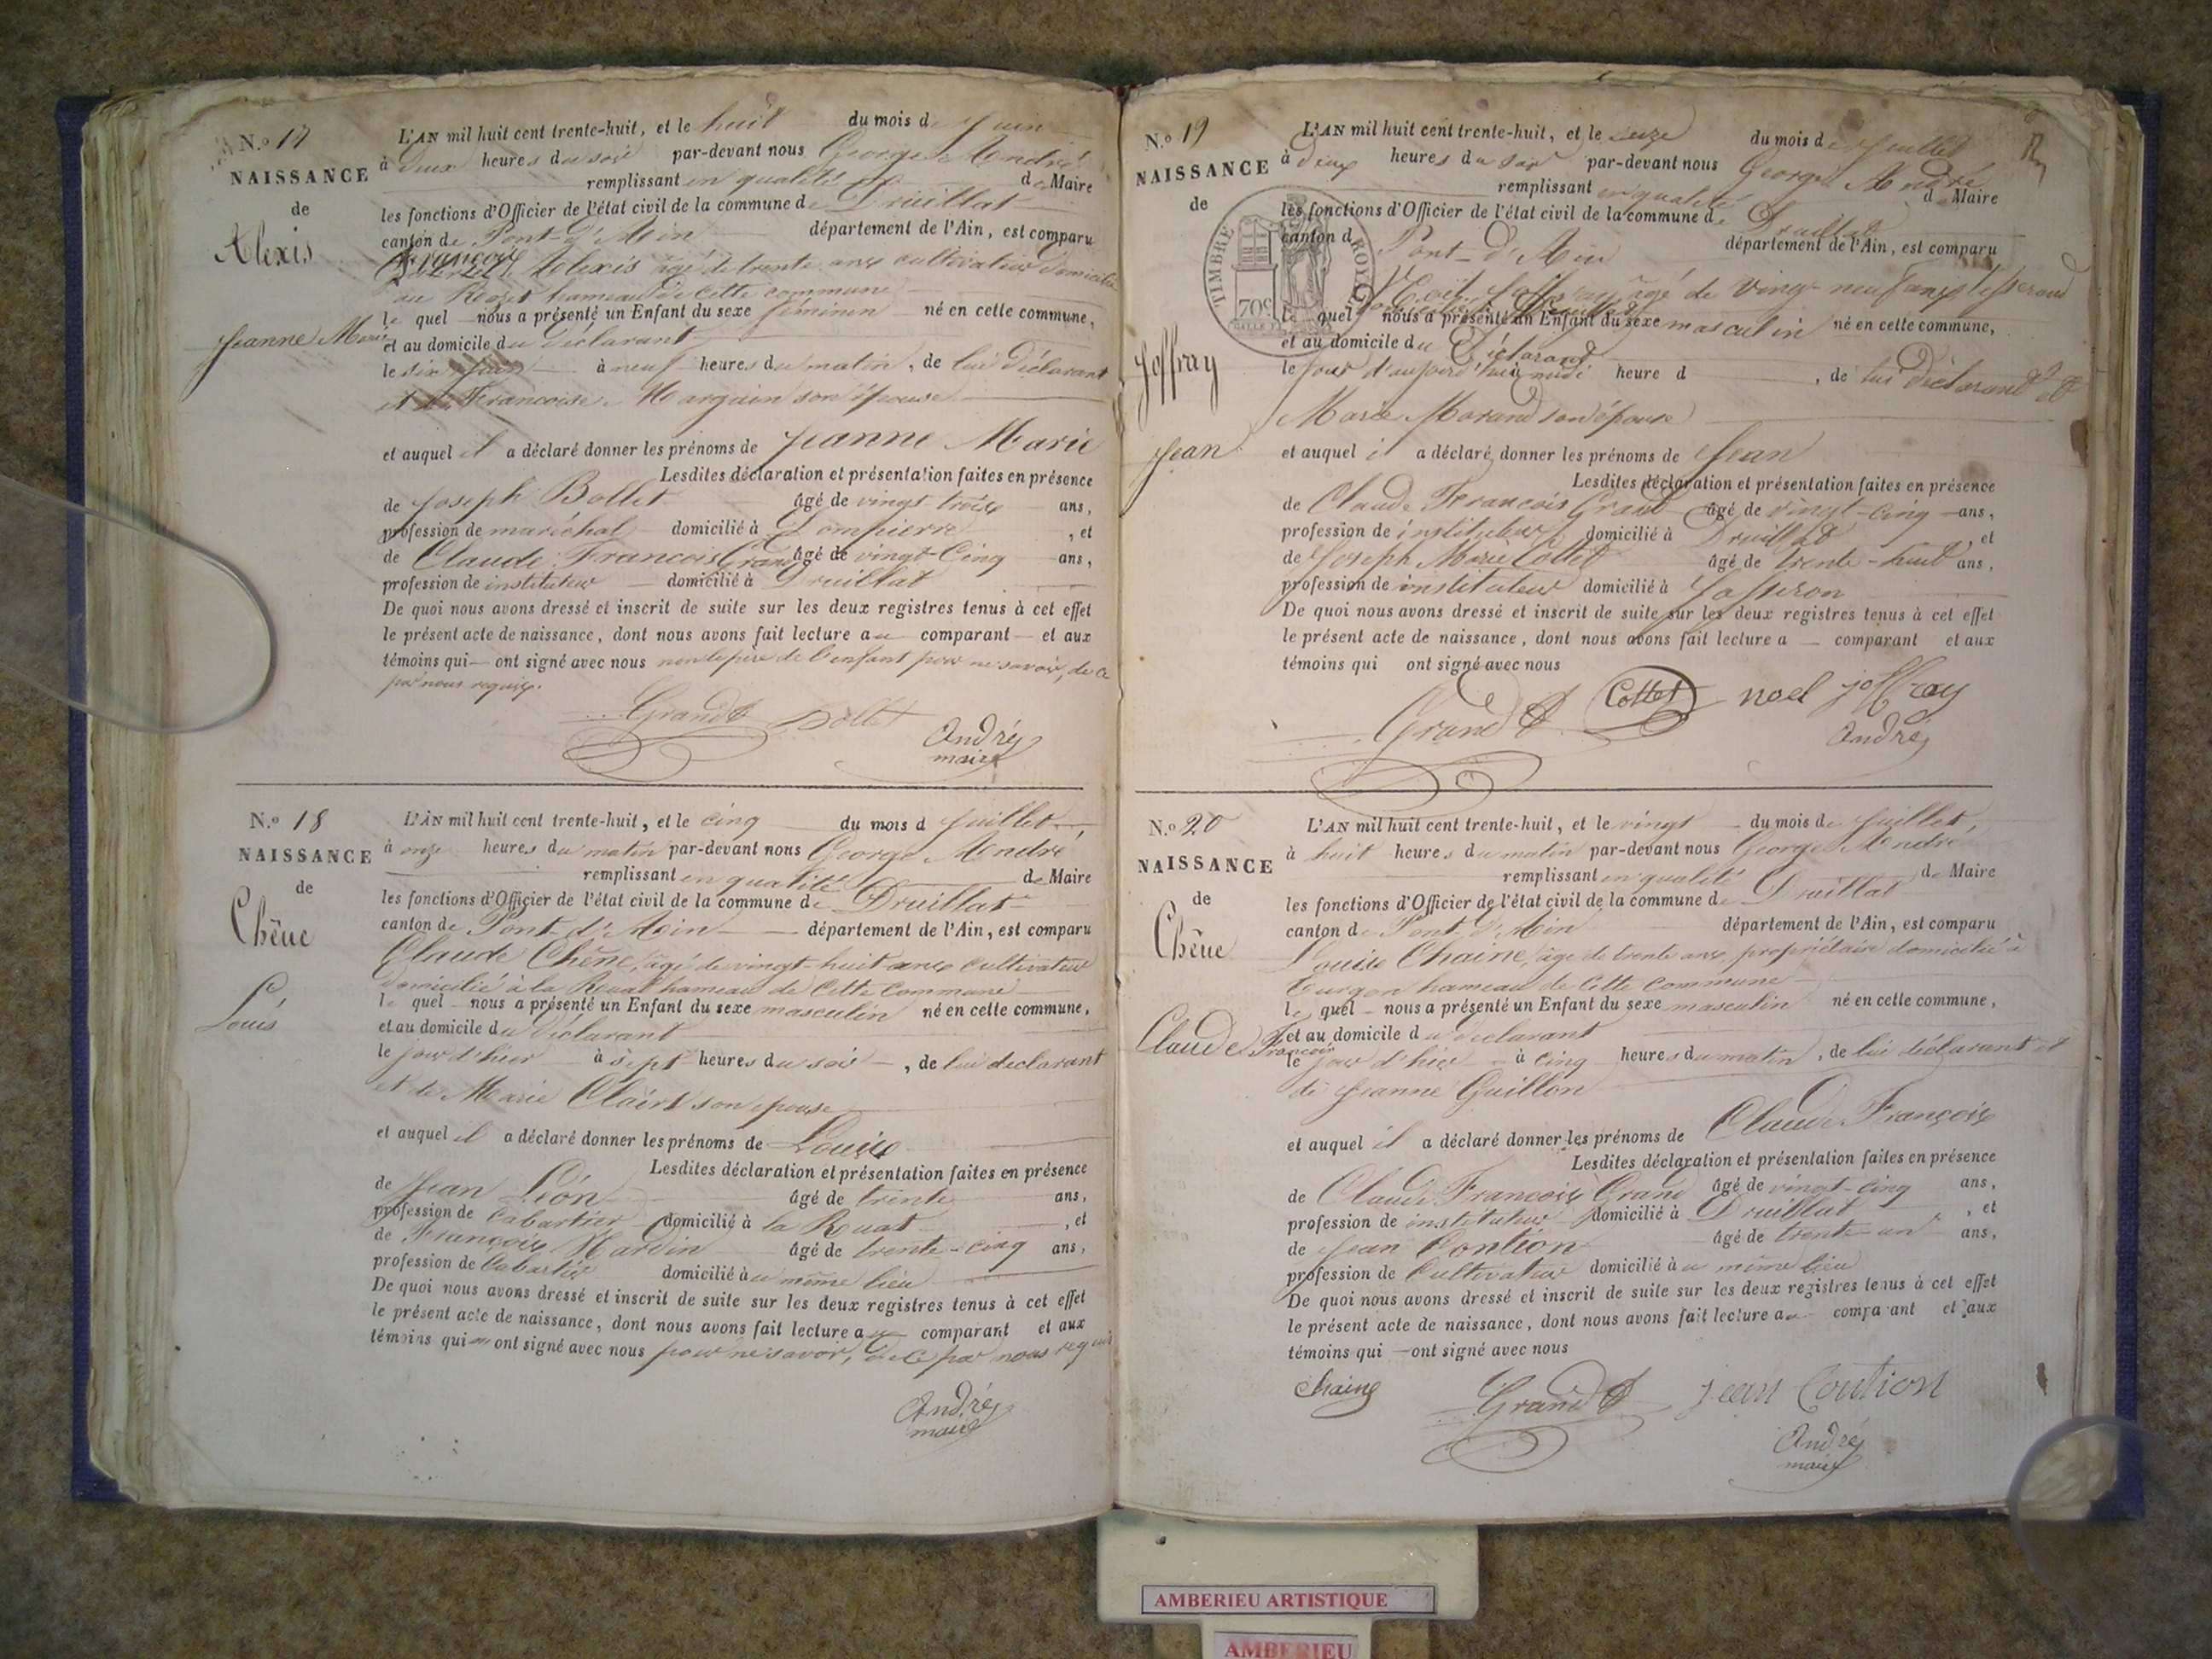 N.o 17
NAISSANCE
de
Alexis
Jeanne Marie
L'AN mil huit cent trente-huit, et le huit du mois de Juin
à deux heures du soir par-devant nous George André
remplissant en qualité de Maire
les fonctions d'Officier de l'état civil de la commune de Druillat
canton de Pont-d'Ain département de l'Ain, est comparu
françois Alexis âgé de trente ans cultivateur domicilié
au hameau de cette commune
le quel nous a présenté un Enfant du sexe féminin né en cette commune,
et au domicile du déclarant
le six Juin à neuf heures du matin, de lui déclarant
et de Francoise Margain son épouse
et auquel il a déclaré donner les prénoms de Jeanne Marie
Lesdites déclaration et présentation faites en présence
de Joseph Bollet âgé de vingt-trois ans,
profession de maréchal domicilié à Dompierre, et
de Claude Francois Grand âgé de vingt-Cinq ans,
profession de instituteur domicilié à Druillat
De quoi nous avons dressé et inscrit de suite sur les deux registres tenus à cet effet
le présent acte de naissance, dont nous avons fait lecture au comparant et aux
témoins qui ont signé avec nous non le père de l'enfant pour ne savoir, de ce
par nous requis.
Grand Bollet
André
maire
N.o 18
NAISSANCE
de
Chêne
Louis
L'AN mil huit cent trente-huit, et le cinq du mois d Juillet,
à onze heures du matin par-devant nous George André
remplissant en qualité de Maire
les fonctions d'Officier de l'état civil de la commune de Druillat
canton de Pont-d'Ain département de l'Ain, est comparu
Claude Chêne, âgé de vingt-huit ans cultivateur
domicilié à la Ruat hameau de cette commune
le quel nous a présenté un Enfant du sexe masculin né en cette commune,
et au domicile du déclarant
le jour d'hier à sept heures du soir, de lui declarant
et de Marie son epouse
et auquel il a déclaré donner les prénoms de Louis
Lesdites déclaration et présentation faites en présence
de Jean Léon âgé de trente ans,
profession de Cabartier domicilié à la Ruat, et
de François Hardin âgé de trente-cinq ans,
profession de Cabartier domicilié au même lieu
De quoi nous avons dressé et inscrit de suite sur les deux registres tenus à cet effet
le présent acte de naissance, dont nous avons fait lecture au comparant et aux
témoins qui ont signé avec nous pour ne savoir, de ce par nous requis
André
maire
N.o 19
NAISSANCE
de
Joffray
Jean
L'AN mil huit cent trente-huit, et le seize du mois de Juillet
à deux heures du soir par-devant nous George André
remplissant en qualité de Maire
les fonctions d'Officier de l'état civil de la commune de Druillat
canton d Pont-d'Ain département de l'Ain, est comparu
TIMBRE ROYAL
70c
Noël Joffray âgé de vingt neuf ans tisserand
le quel nous a présenté un Enfant du sexe masculin né en cette commune,
et au domicile du Déclarand
le jour d'aujourd'hui midi heure d, de lui déclarand et
Marie Morand son épouse
et auquel il a déclaré donner les prénoms de Jean
Lesdites déclaration et présentation faites en présence
de Claude Francois Grand âgé de vingt-cinq ans,
profession de instituteur domicilié à Druillat, et
de Joseph Marie Collet âgé de trente-huit ans,
profession de instituteur domicilié à Jasseron
De quoi nous avons dressé et inscrit de suite sur les deux registres tenus à cet effet
le présent acte de naissance, dont nous avons fait lecture a comparant et aux
témoins qui ont signé avec nous
Grand Collet noel joffray
André
N.o 20
NAISSANCE
de
Chêne
Claude François
L'AN mil huit cent trente-huit, et le vingt du mois de Juillet,
à huit heures du matin par-devant nous George André
remplissant en qualité de Maire
les fonctions d'Officier de l'état civil de la commune de Druillat
canton de Pont-d'Ain département de l'Ain, est comparu
Louis Chaine, âgé de trente ans, propriétaire domicilié à
Turgon hameau de cette commune
le quel nous a présenté un Enfant du sexe masculin né en cette commune,
et au domicile du declarant
le jour d'hier à cinq heures du matin, de lui déclarant et
de Jeanne Guillon
et auquel il a déclaré donner les prénoms de Claude François
Lesdites déclaration et présentation faites en présence
de Claude François Grand âgé de vingt-cinq ans,
profession de instituteur domicilié à Druillat, et
de Jean Contion âgé de trente un ans,
profession de Cultivateur domicilié au même lieu
De quoi nous avons dressé et inscrit de suite sur les deux registres tenus à cet effet
le présent acte de naissance, dont nous avons fait lecture au comparant et aux
témoins qui ont signé avec nous
Chaine Grand Jean Contion
André
maire
AMBERIEU ARTISTIQUE
AMBERIEU